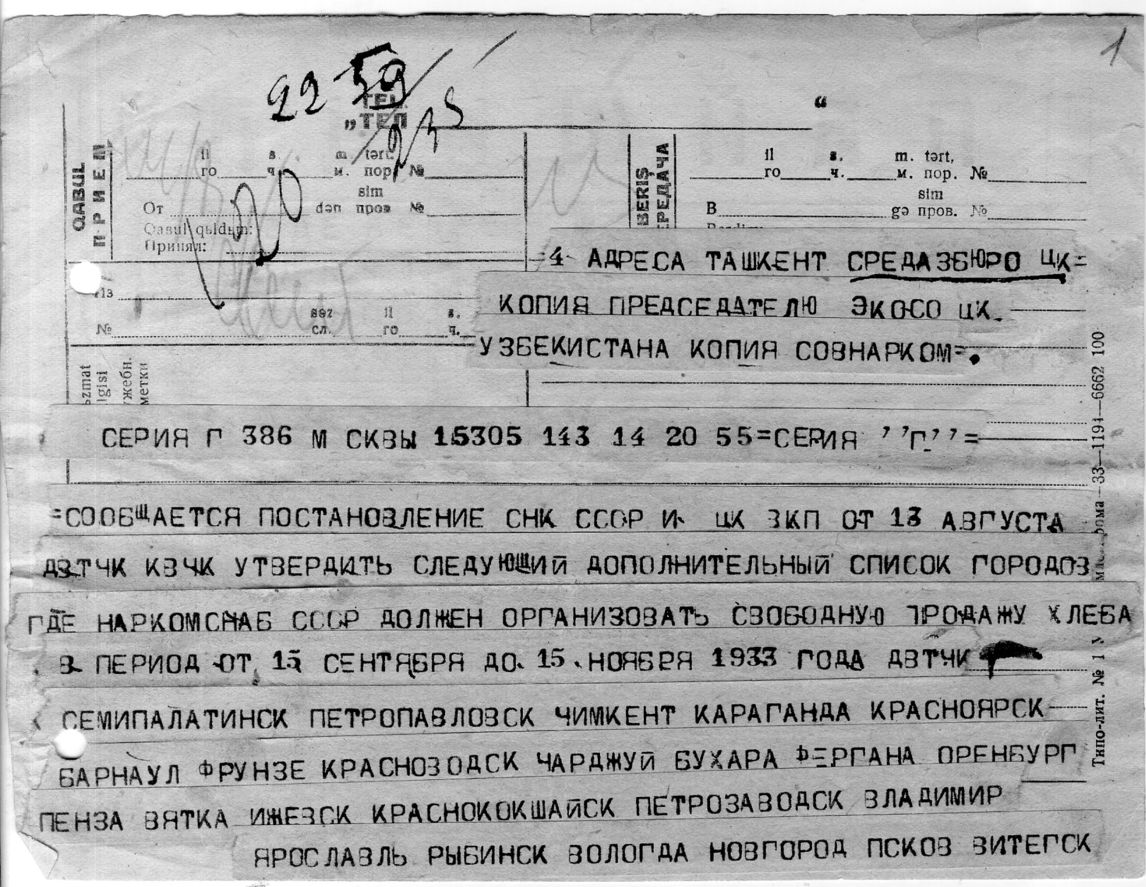 1
22 59
TEL.
„ТЕЛ “
235
QABUL
ПРИЕМ
il s. m. tərt,
го ч. м. пор. №
sim
От dən пров №
Qasul qыldыm:
Принял:
20
BERIŞ
ЕРЕДАЧА
il s. m. tərt,
го ч. м. пор. №
sim
В gə пров. №
Из
səz il s.
№ сл. го ч.
ızmat
lgisi
ужебн.
метки
=4 АДРЕСА ТАШКЕНТ СРЕДАЗБЮРО ЦК=
КОПИЯ ПРЕДСЕДАТЕЛЮ ЭКОСО ЦК.
УЗБЕКИСТАНА КОПИЯ СОВНАРКОМ=.
СЕРИЯ Г 386 М СКВЫ 15305 143 14 20 55=СЕРИЯ ’’Г’’=
=СООБЩАЕТСЯ ПОСТАНОВЛЕНИЕ СНК СССР И ЦК ВКП ОТ 13 АВГУСТА
ДВТЧК КВЧК УТВЕРДИТЬ СЛЕДУЮЩИЙ ДОПОЛНИТЕЛЬНЫЙ СПИСОК ГОРОДОВ
ГДЕ НАРКОМСНАБ СССР ДОЛЖЕН ОРГАНИЗОВАТЬ СВОБОДНУЮ ПРОДАЖУ ХЛЕБА
В ПЕРИОД ОТ 15 СЕНТЯБРЯ ДО 15 НОЯБРЯ 1933 ГОДА ДВТЧК
СЕМИПАЛАТИНСК ПЕТРОПАВЛОВСК ЧИМКЕНТ КАРАГАНДА КРАСНОЯРСК
БАРНАУЛ ФРУНЗЕ КРАСНОВОДСК ЧАРДЖУЙ БУХАРА ФЕРГАНА ОРЕНБУРГ
ПЕНЗА ВЯТКА ИЖЕВСК КРАСНОКОКШАЙСК ПЕТРОЗАВОДСК ВЛАДИМИР
ЯРОСЛАВЛЬ РЫБИНСК ВОЛОГДА НОВГОРОД ПСКОВ ВИТЕГСК
Типо-лит. № 1 рома—33—1194—6662 100